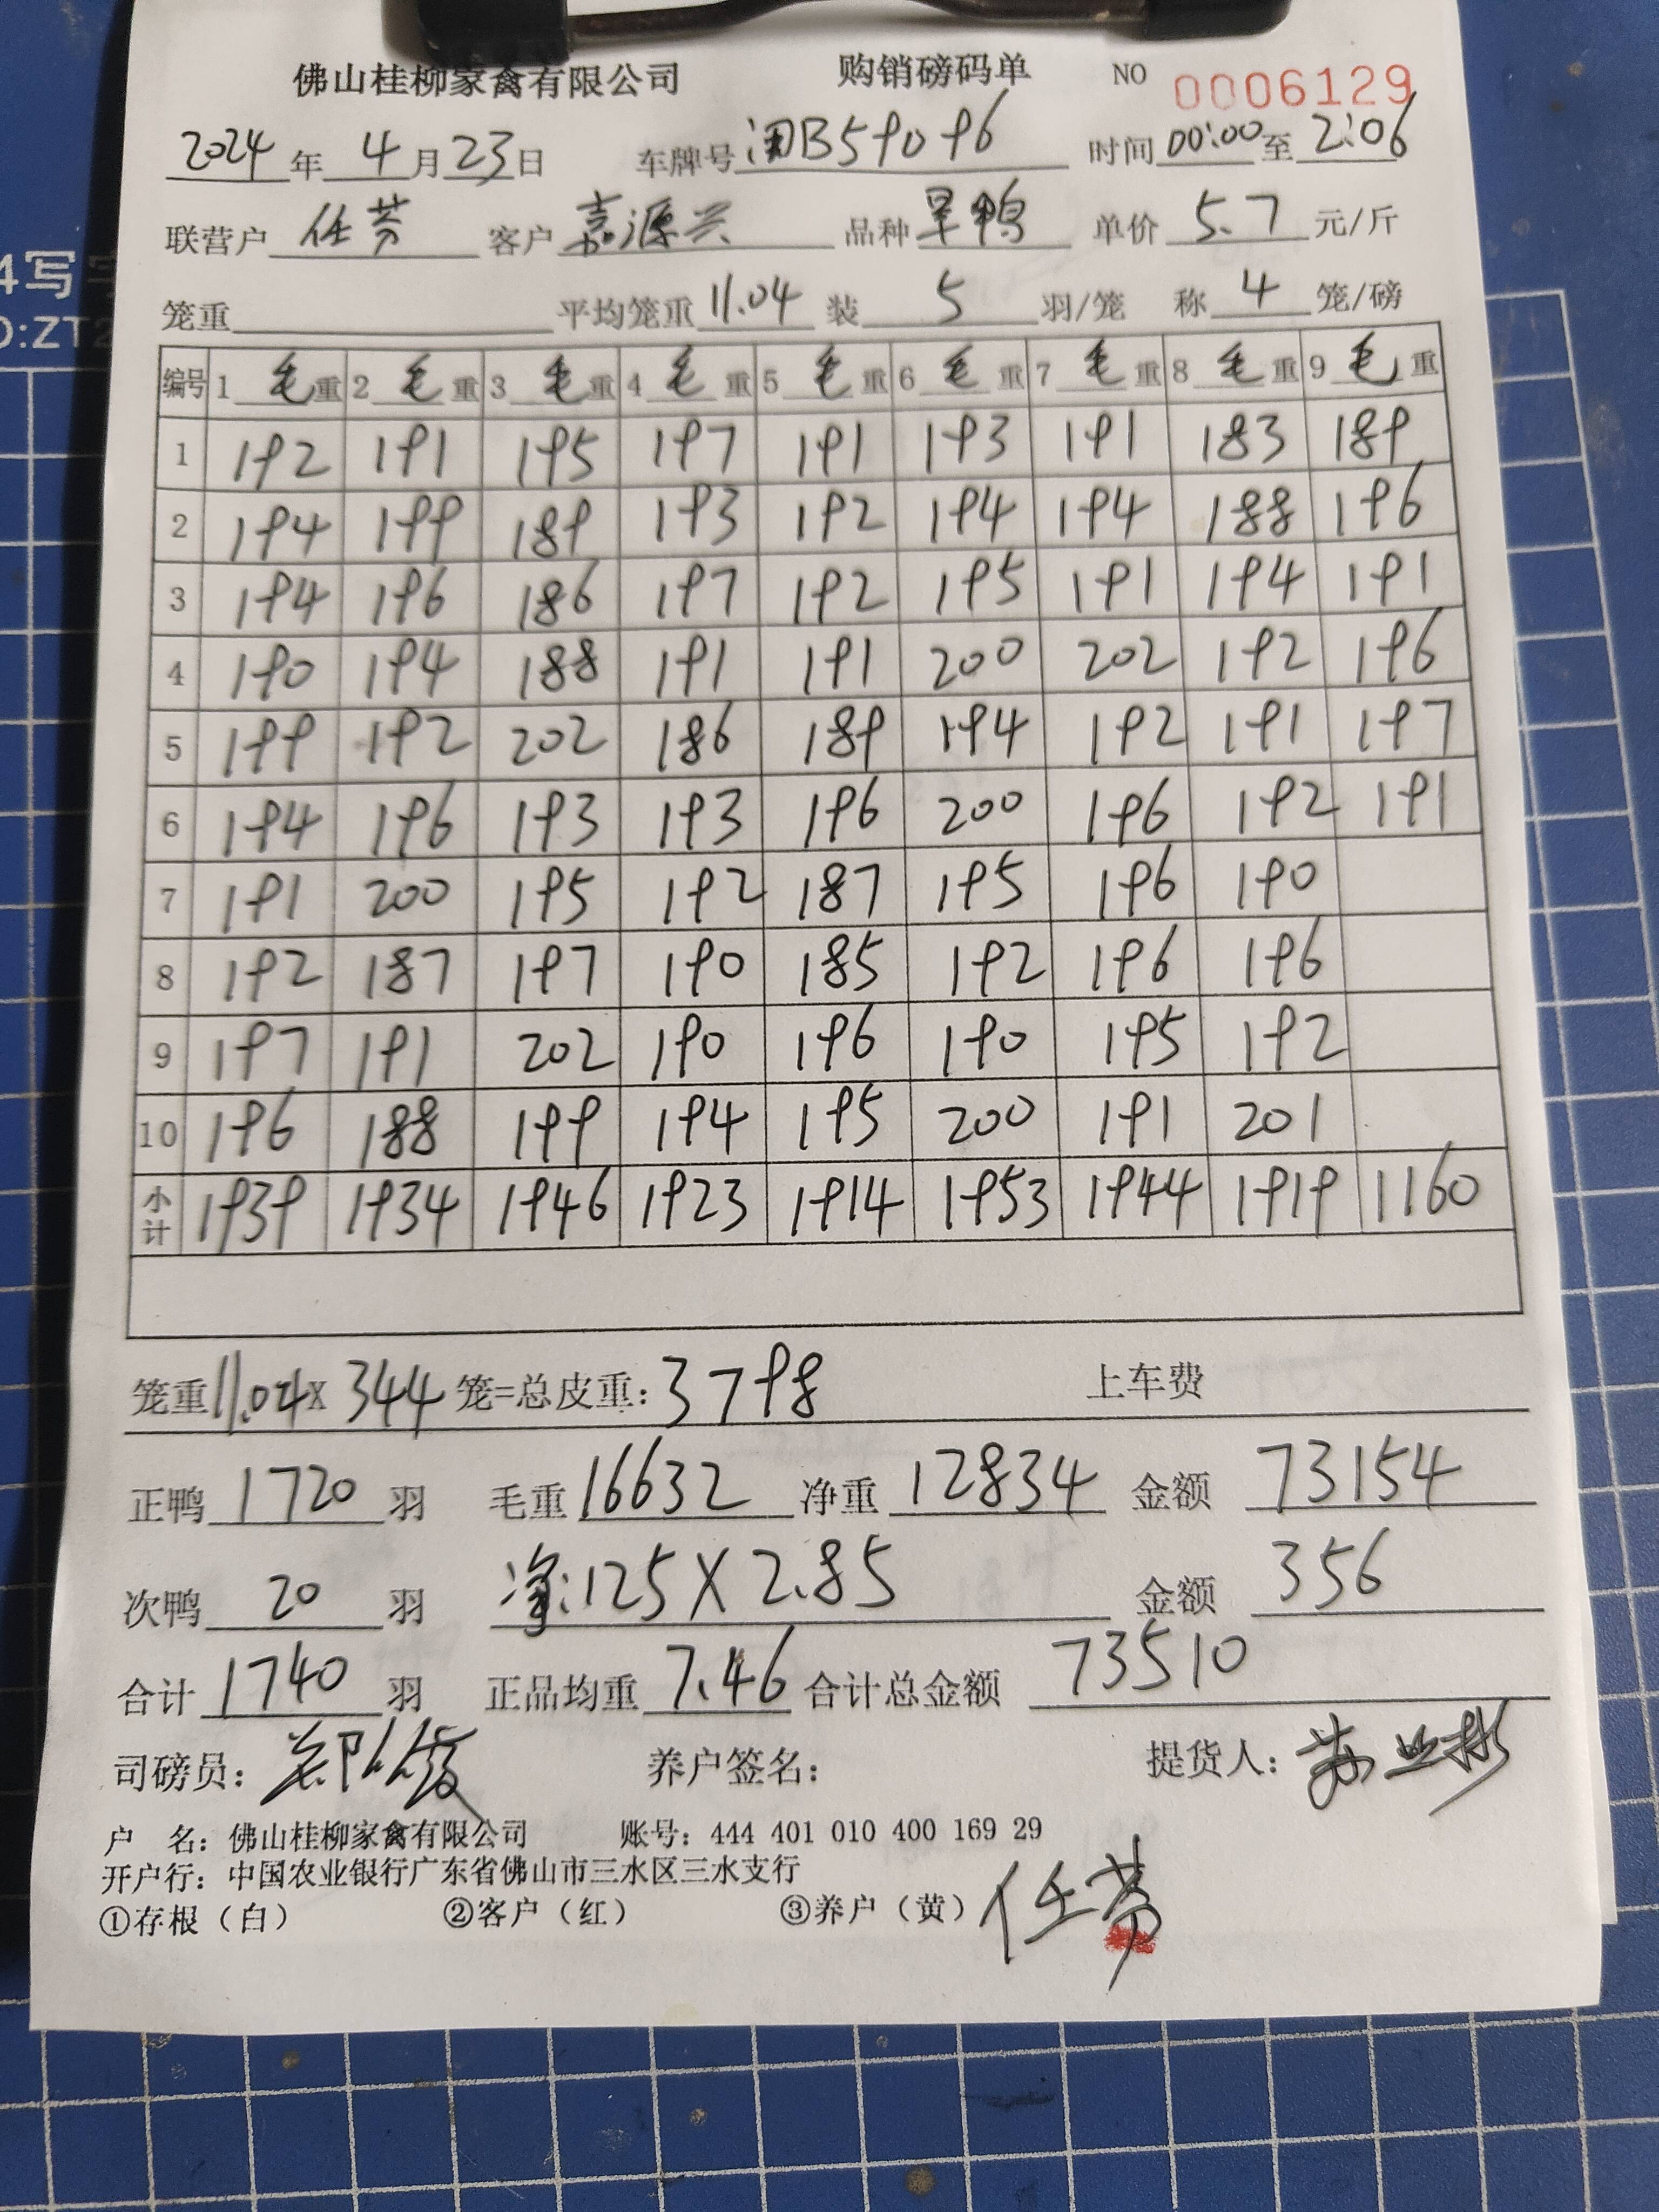 佛山桂柳家禽有限公司 购销磅码单 NO 0006129
2024年4月23日 车牌号 闽B59096 时间 00:00 至 2:06
联营户 任芬 客户 嘉源兴 品种 旱鸭 单价 5.7 元/斤
4写字
笼重 平均笼重 11.04 装 5 羽/笼 称 4 笼/磅
编号 1 毛重 2 毛重 3 毛重 4 毛重 5 毛重 6 毛重 7 毛重 8 毛重 9 毛重
1 192 191 195 197 191 193 191 183 189
2 194 199 189 193 192 194 194 188 196
3 194 196 186 197 192 195 191 194 191
4 190 194 188 191 191 200 202 192 196
5 199 192 202 186 189 194 192 191 197
6 194 196 193 193 196 200 196 192 191
7 191 200 195 192 187 195 196 190
8 192 187 197 190 185 192 196 196
9 197 191 202 190 196 190 195 192
10 196 188 199 194 195 200 191 201
小计 1939 1934 1946 1923 1914 1953 1944 1919 1160
笼重 11.04 X 344 笼=总皮重: 3798 上车费
正鸭 1720 羽 毛重 16632 净重 12834 金额 73154
次鸭 20 羽 净:125 X 2.85 金额 356
合计 1740 羽 正品均重 7.46 合计总金额 73510
司磅员: 养户签名: 提货人:
户 名: 佛山桂柳家禽有限公司 账号: 444 401 010 400 169 29
开户行: 中国农业银行广东省佛山市三水区三水支行
①存根（白） ②客户（红） ③养户（黄） 任芬